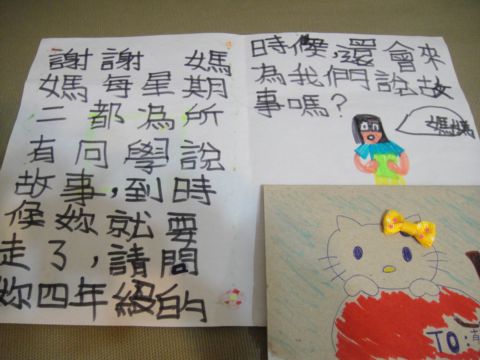 謝謝 媽
媽每星期
二都為所
有同學說
故事,到時
候妳就要
走了,請問
妳四年級的
時候,還會來
為我們說故
事嗎?
媽媽
TO: